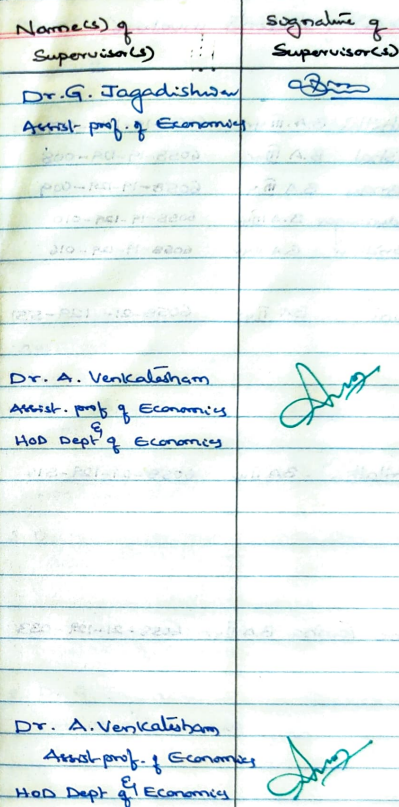 Name(s) of
Supervisor(s)
Signature of
Supervisor(s)
Dr. G. Jagadishwar
Assist prof. of Economics
Dr. A. Venkatesham
Assist. prof of Economics
&
HOD Dept of Economics
Dr. A. Venkatesham
Assist prof. of Economics
&
HOD Dept of Economics